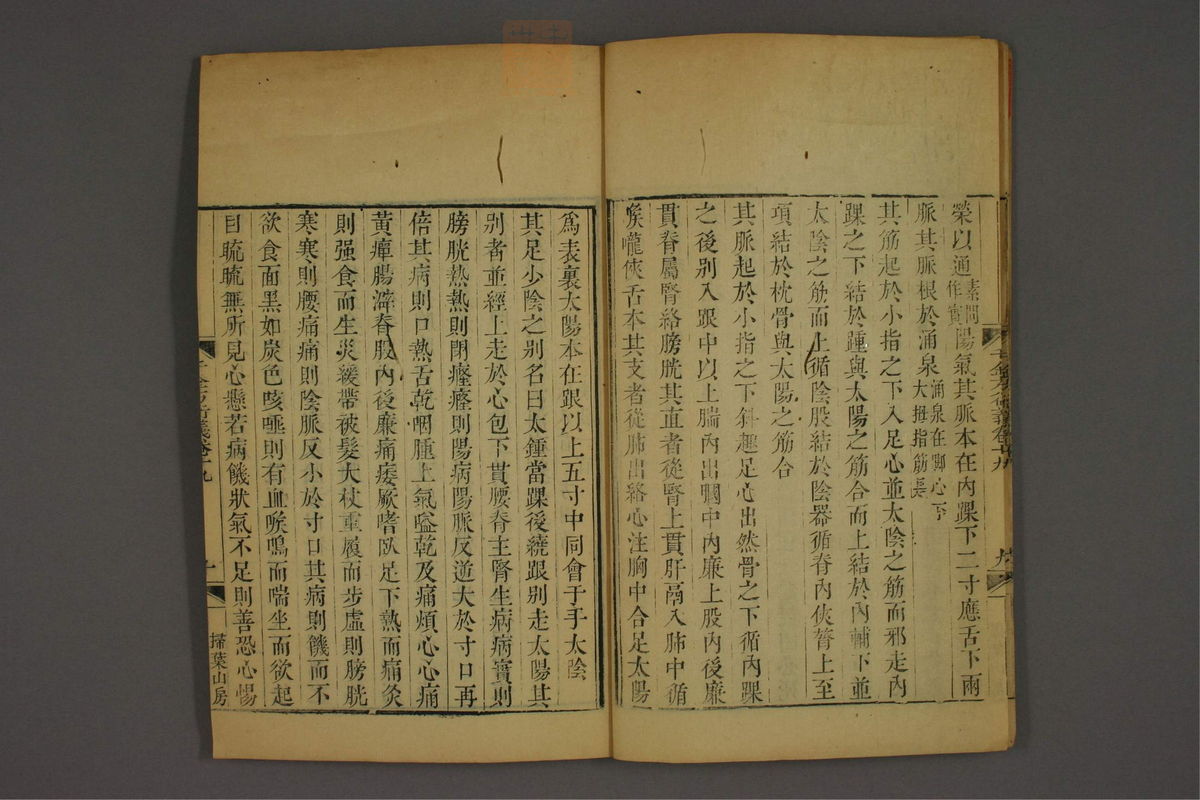 榮以通素問作實陽氣其脈本在內踝下二寸應舌下兩
脈其脈根於涌泉涌泉在脚心下大拇指筋是
其筋起於小指之下入足心並太陰之筋而邪走內
踝之下結於踵與太陽之筋合而上結於內輔下並
太陰之筋而上循陰股結於陰器循脊內俠膂上至
項結於枕骨與太陽之筋合
其脈起於小指之下斜趣足心出然骨之下循內踝
之後別入跟中以上腨內出膕中內廉上股內後廉
貫脊屬腎絡膀胱其直者從腎上貫肝鬲入肺中循
喉嚨俠舌本其支者從肺出絡心注胸中合足太陽
爲表裏太陽本在跟以上五寸中同會于手太陰
其足少陰之別名曰太鍾當踝後繞跟別走太陽其
別者並經上走於心包下貫腰脊主腎生病病實則
膀胱熱熱則閉癃癃則陽病陽脈反逆大於寸口再
倍其病則口熱舌乾咽腫上氣嗌乾及痛煩心心痛
黃癉腸澼脊股內後廉痛痿厥嗜臥足下熱而痛灸
則强食而生災緩帶被髮大杖重履而步虛則膀胱
寒寒則腰痛痛則陰脈反小於寸口其病則饑而不
欲食面黑如炭色咳唾則有血喉鳴而喘坐而欲起
目䀮䀮無所見心懸若病饑狀氣不足則善恐心惕
掃葉山房